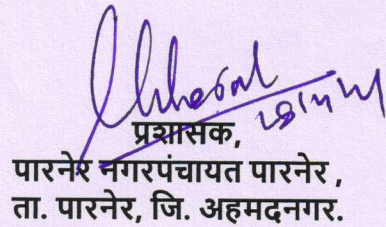 प्रशासक,
पारनेर नगरपंचायत पारनेर ,
ता. पारनेर, जि. अहमदनगर.